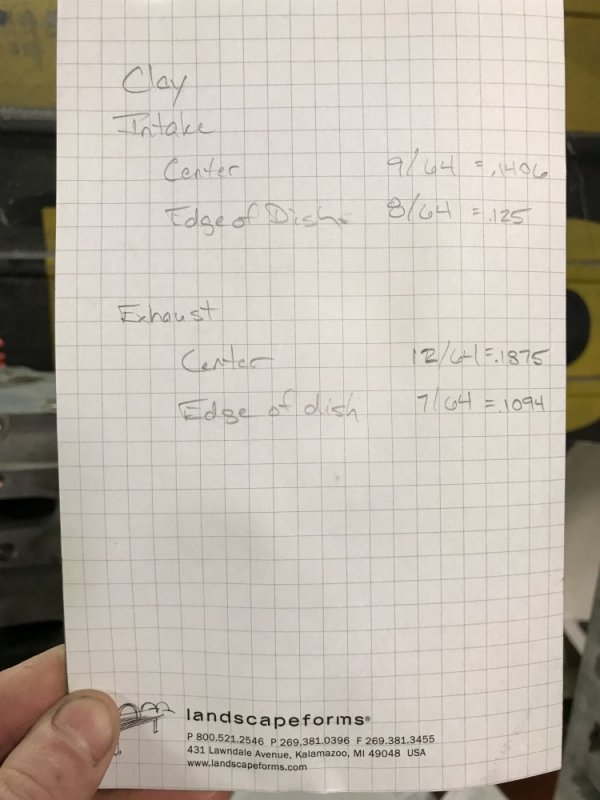 Clay
Intake
Center 9/64 = .1406
Edge of Dish 8/64 = .125
Exhaust
Center 12/64 = .1875
Edge of dish 7/64 = .1094
landscapeforms®
P 800.521.2546 P 269.381.0396 F 269.381.3455
431 Lawndale Avenue, Kalamazoo, MI 49048 USA
www.landscapeforms.com